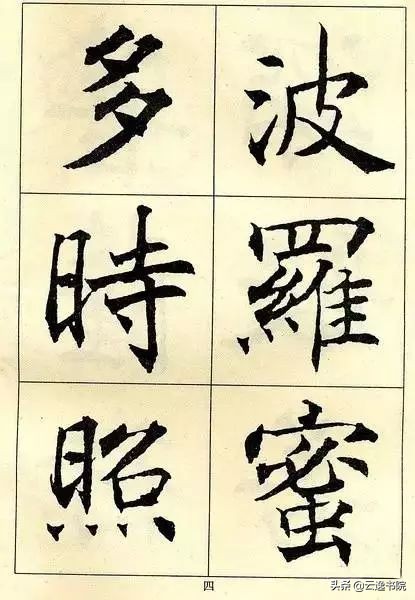 波羅蜜
多時照
四
头条@云逸书院